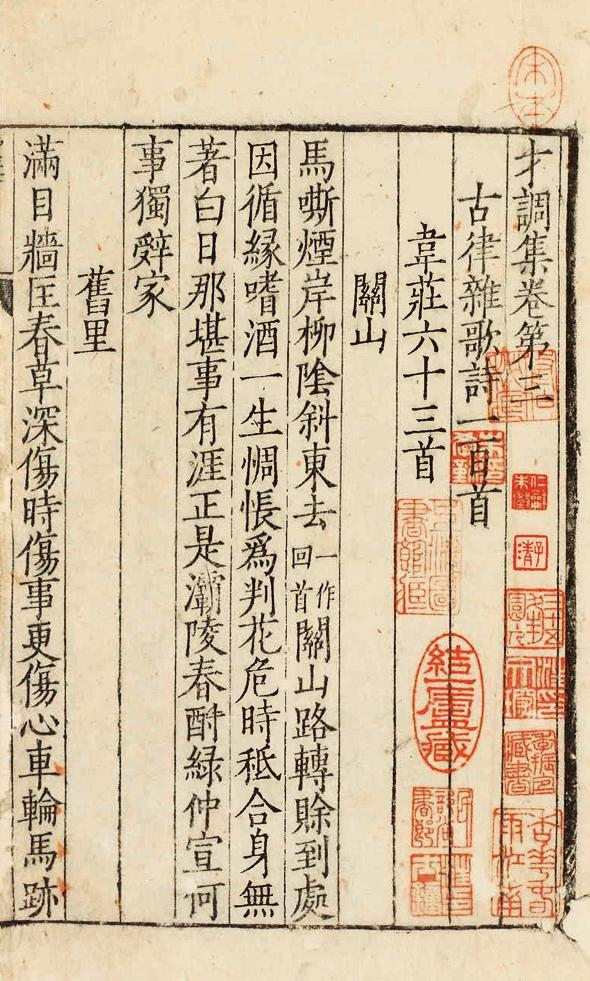 才調集卷第三
古律雜歌詩一百首
韋莊六十三首
關山
馬嘶煙岸柳陰斜東去一作回首關山路轉賒到處
因循緣嗜酒一生惆悵爲判花危時秪合身無
著白日那堪事有涯正是灞陵春酧綠仲宣何
事獨辤家
舊里
滿目牆匡春草深傷時傷事更傷心車輪馬跡
宋本
結廬藏